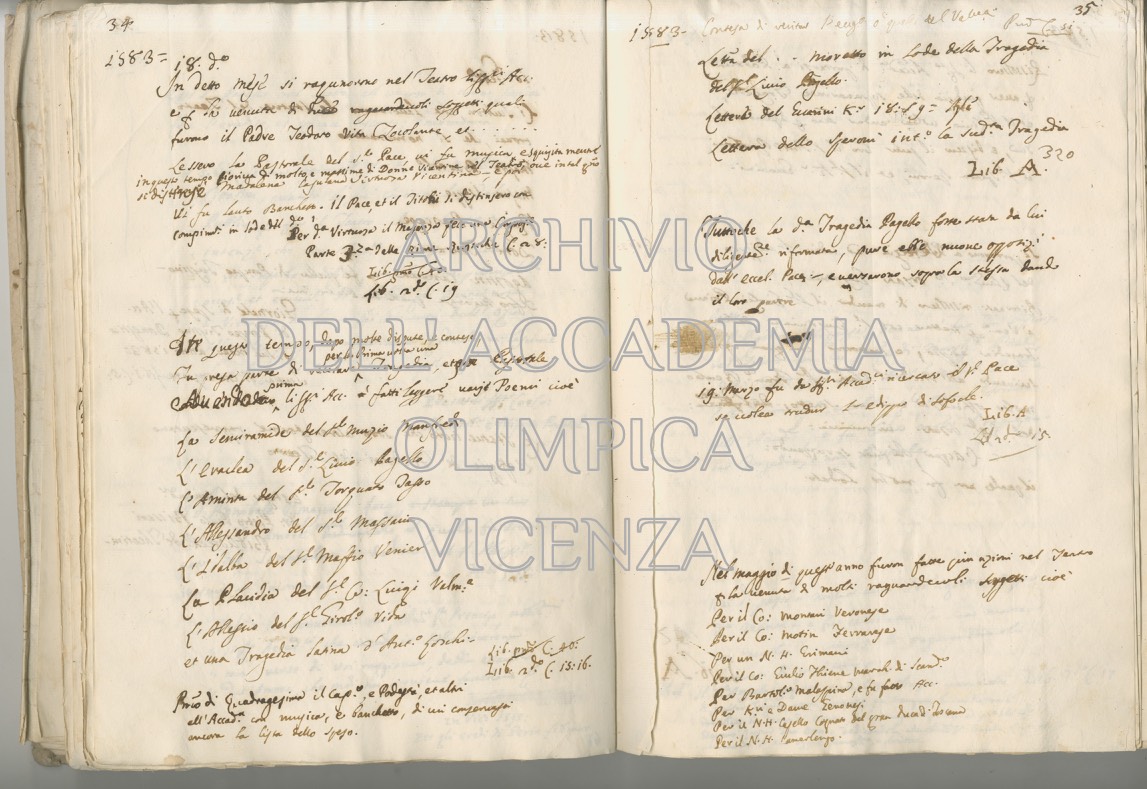 34
1583=
18: do
In detto mese si ragunorono nel Teatro gli Acc:
e p la venuta di ragguardevoli soggetti quali
furono il Padre Teodoro Vita Zocolante, et . . . . . .
Lessero La Pastorale del Sr Pace, vi fu musica esquisita mentre
in questo tempo fioriva di molto, e massime di Donne
si distinse Madalena Casulana Virtuosa Vicentina
Vi fu lauto Banchetto. Il Pace, et il si distinsero con
componimti in lode del do
Per da Virtuosa il Maganza fece una
Parte 3za delle Rime Rustiche C. 28:
Lib. pmo C. 40:
Lib. 2do C. 19
In questo tempo, dopo molte dispute, e contese
per la prima volta una
Fu presa parte di recitare Tragedia, et Pastorale
prima
gli Acc: fatti leggere varij Poemi cioè
La Semiramide del Sr Muzio Manfredi
L'Eraclea del Sr Livio Pagello
L'Aminta del Sr Torquato Tasso
L'Alessandro del Sr Massaria
L'Idalba del Sr Maffio Venier
La Placidia del Sr Co: Luigi Valma
L'Alessio del Sr Girolo Vida
et una Tragedia Latina d'Anto Loschi=
Lib. pmo C. 40:
Lib. 2do C. 15: 16.
Pmo di Quadragesima il Capo, e Podestà, et altri
all'Accada con musica, e banchetto, di cui conservasi
ancora la lista delle spese.
35
1583= Contesa di
Letta del . . Moretto in Lode della Tragedia
del Sr Livio Pagello.
Lettera del Guarini Kr
Lettera dello Speroni into la sudta Tragedia
Lib. A. 320
Tuttoche la da Tragedia Pagello fosse stata da lui
riformata, pure ebbe nuove opposizi
dall' eccel. Pace, e versarono sopra la stessa dando
il loro parere
19. Marzo fu da Acci ricercato il Sr Pace
se volea tradur l'edippo di Sofocle.
Lib. A
15
Nel maggio di quest'anno furon fatte più azioni nel Teatro
p la venuta di molti ragguardevoli soggetti cioè
Per il Co: Montani Veronese
Per il Co: Motin Ferrarese
Per un N. H. Grimani
Per il Co: Giulio Thiene March: di Scando
Per Bartolo Malespina, e fu fatto Acc:
Per Kri e Dame Genovesi
Per il N. H. Capello Cognato del gran Duca di Toscana
Per il N. H.
ARCHIVIO
DELL'ACCADEMIA
OLIMPICA
VICENZA